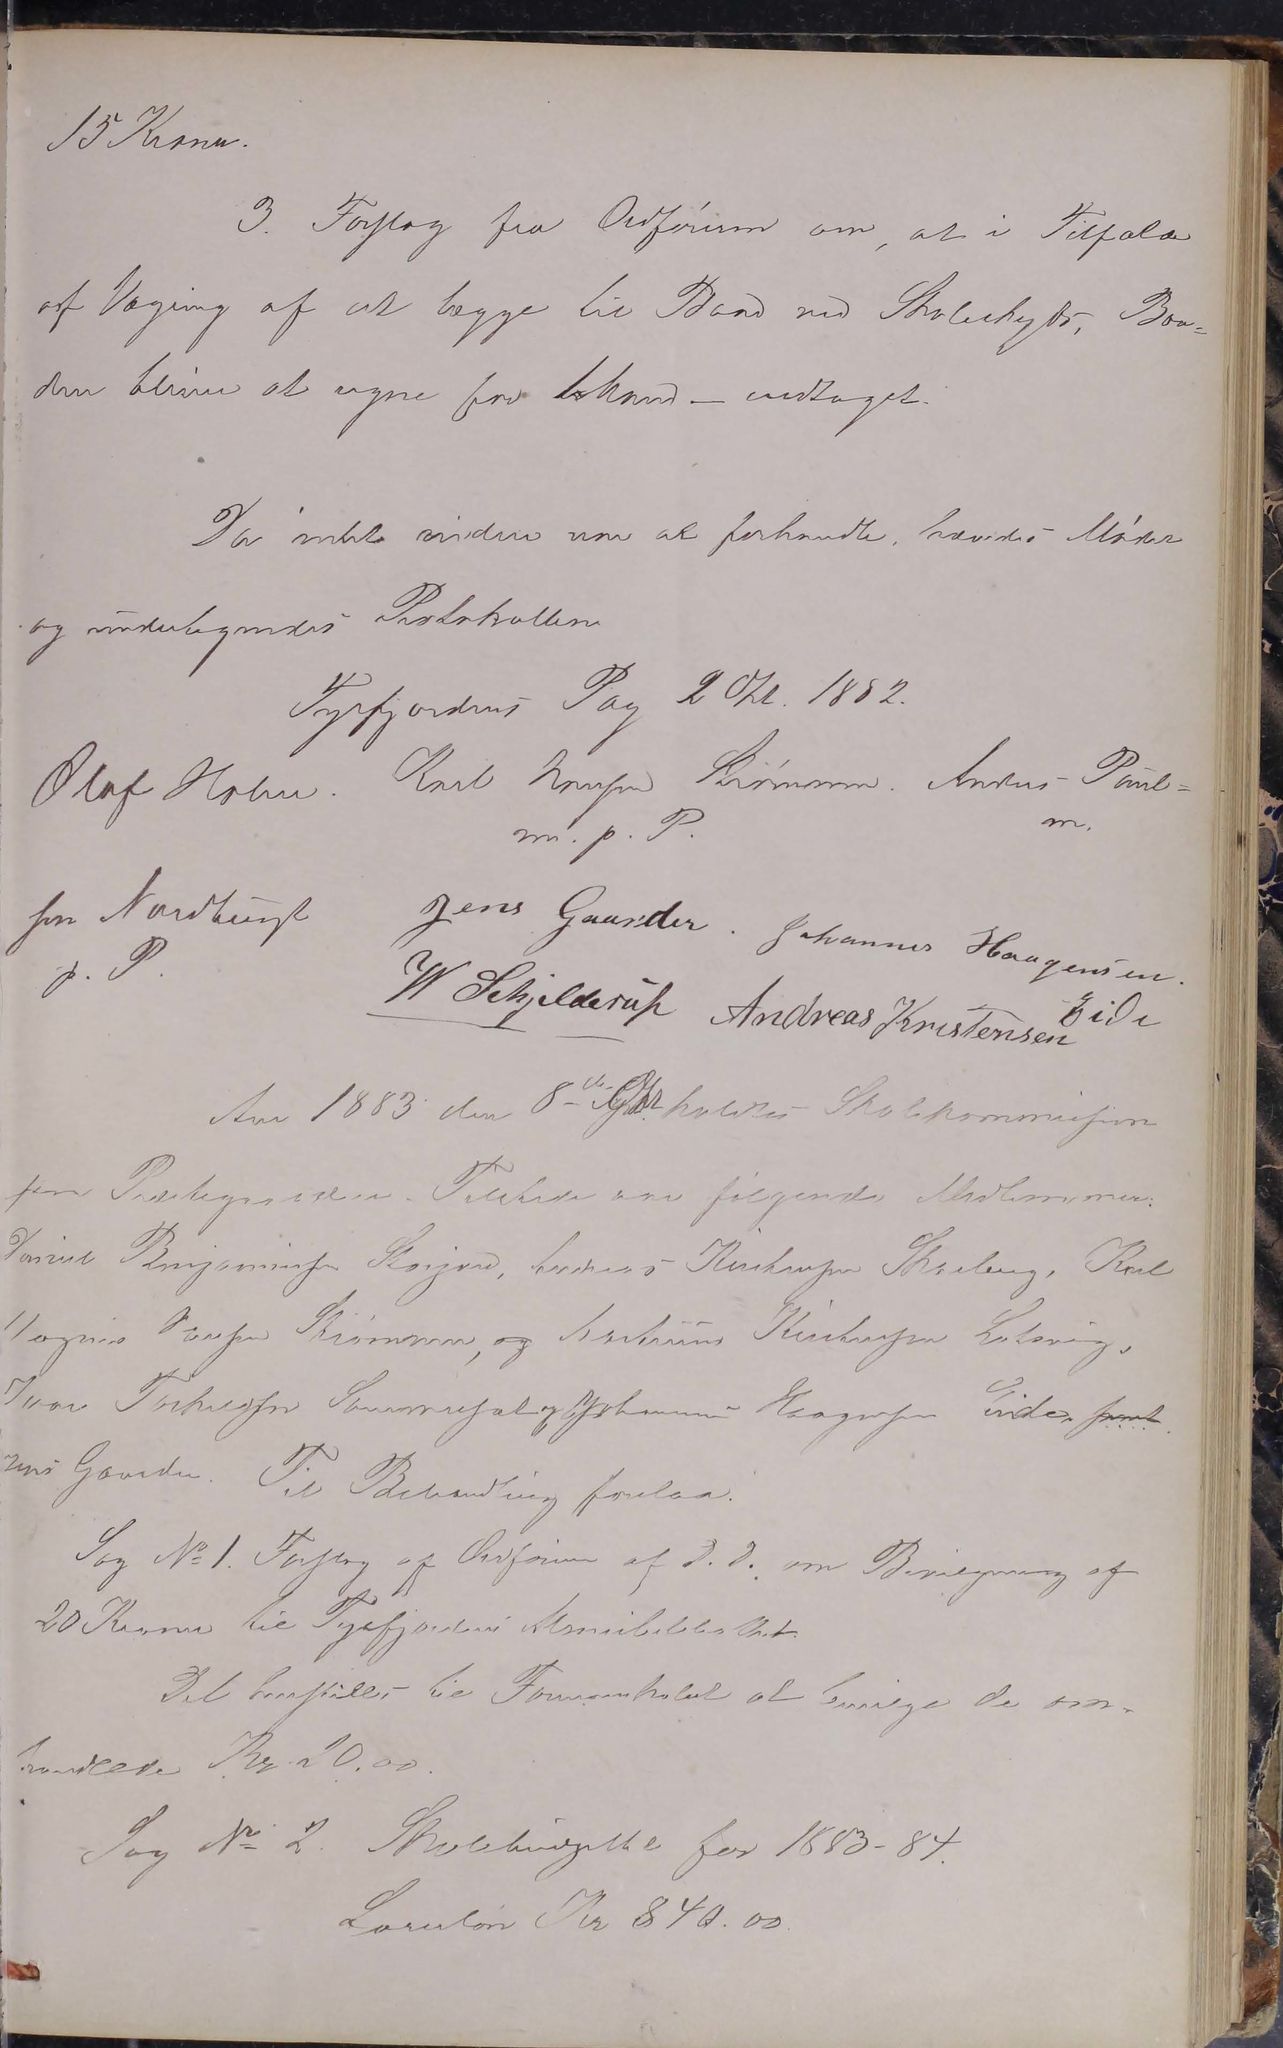 15 Kroner.
3. Forslag fra Ordføreren om, at i Tilfælde
af Vægring af at lægge til Baad ved Skoleskyds, Baa-
den bliver at regne for 1 Mand – vedtaget.
Da intet videre var at forhandle, hævedes Mødet
og undertegnedes Protokollen
Tysfjordens Pgd 2 Okt. 1882.
Olaf Holm. Karl Knutsen Strømmen. Anders Paul-
m. p. P. m.
sen Nordbugt Jens Gaarder. Johannes Haagensen
p. P. Eide
W Schjelderup Andreas Kristensen
Aar 1883 den 8de holdtes Skolekommission
paa Præstegaarden. Tilstede var følgende Medlemmer:
Daniel Benjaminsen Storjord, Andreas Kristensen Skarberg, Karl
Magnus Knutsen Strømmen, og Martinus Kristensen
Ivar Torkildsen og Johannes Haagensen Eide, samt
Jens Gaarder. Til Behandling forelaa:
Sag No 1. Forslag af Ordføreren af d. D. om Bevilgning af
20 Kroner til Tysfjordens Almuebibliothek.
Det henstilles til Formannskabet at bevilge de om-
handlede Kr 20.00.
Sag No 2. Skolebudgettet for 1883-84.
Lærerløn Kr 840.00